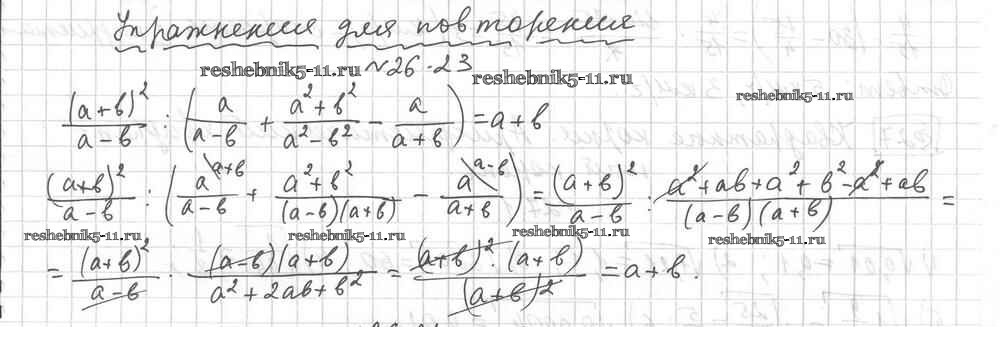 Упражнения для повторения
reshebnik5-11.ru №26.23 reshebnik5-11.ru
reshebnik5-11.ru
(a+b)²/(a-b) : (a/(a-b) + (a²+b²)/(a²-b²) - a/(a+b)) = a+b
(a+b)²/(a-b) : (a^(a+b)/(a-b) + (a²+b²)/((a-b)(a+b)) - a^(a-b)/(a+b)) = (a+b)²/(a-b) : (a²+ab+a²+b²-a²+ab)/((a-b)(a+b)) =
reshebnik5-11.ru reshebnik5-11.ru reshebnik5-11.ru reshebnik5-11.ru
= (a+b)²/(a-b) · ((a-b)(a+b))/(a²+2ab+b²) = ((a+b)²·(a+b))/(a+b)² = a+b.